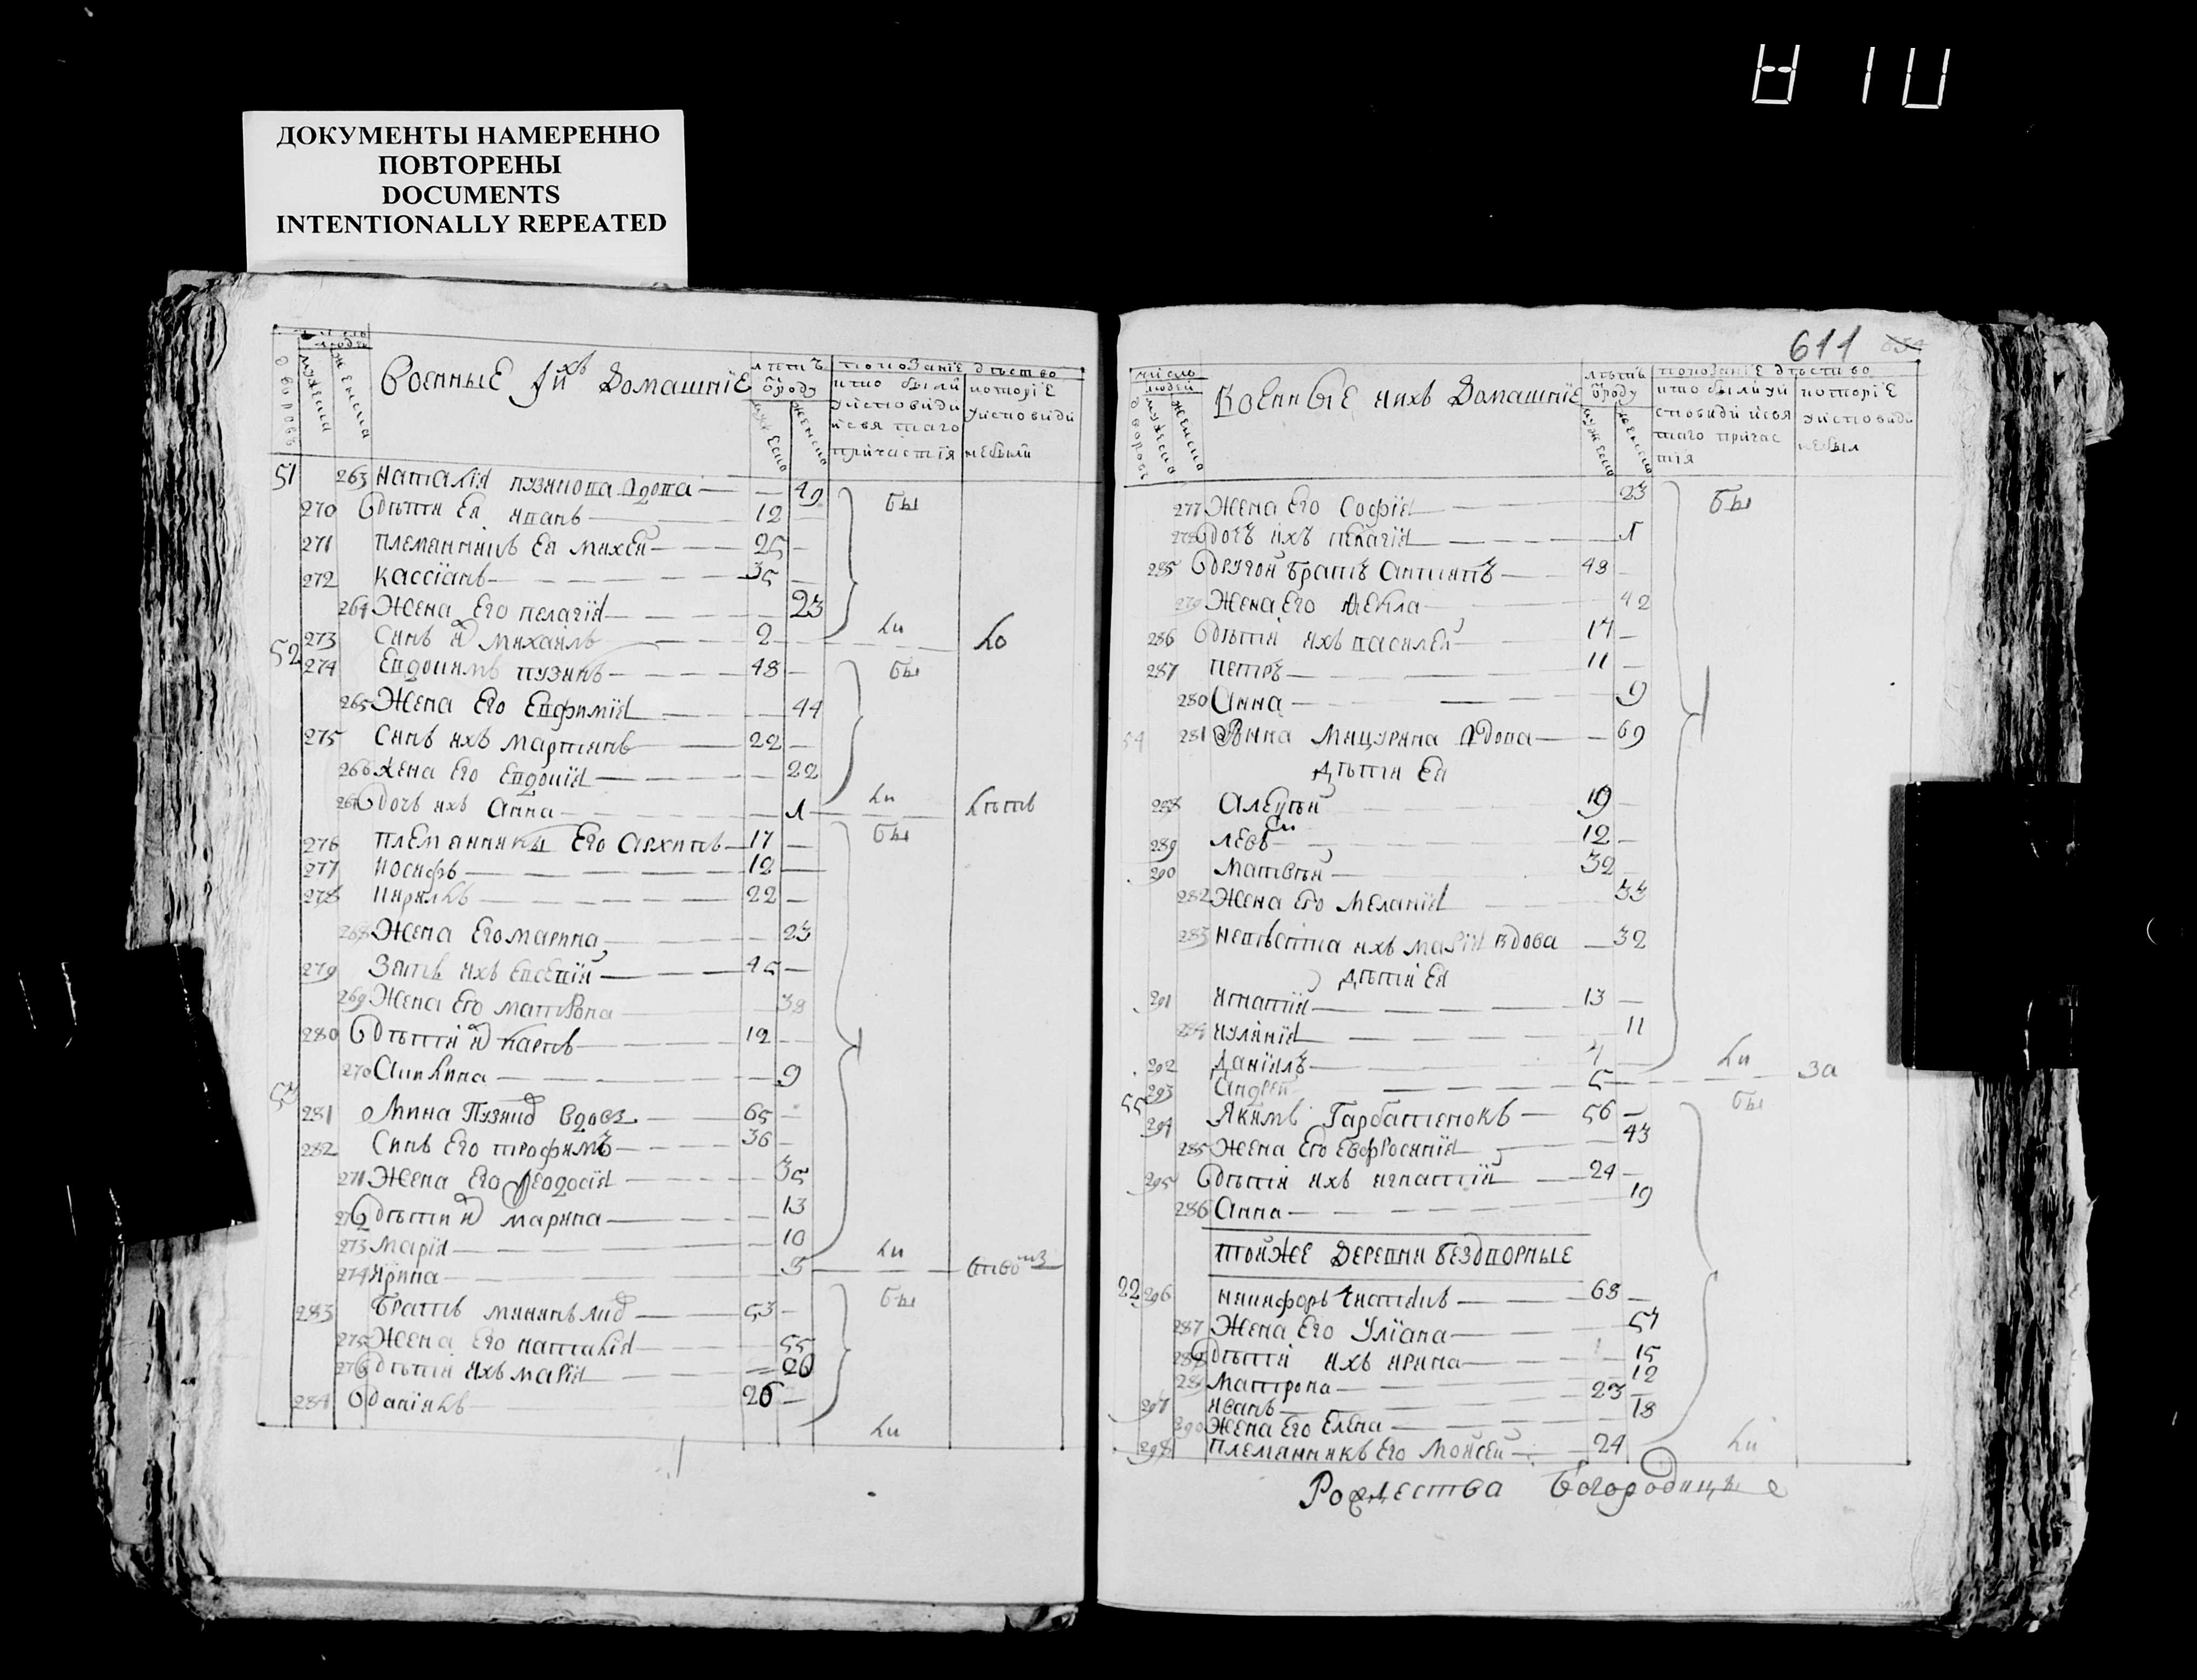 ДОКУМЕНТЫ НАМЕРЕННО
ПОВТОРЕНЫ
DOCUMENTS
INTENTIONALLY REPEATED
число
людей
дворовъ
мужеска
женска
Военные ӥ ихъ Домашнїе
лѣтъ
ѿроду
мужеско
женско
показанїе дѣство
кто были
уисповѣди
исвятаго
причастїя
которїе
уисповѣди
небыли
51 263 Наталїя пузикова вдова — 49 бы
270 дѣти Ея иванъ 12
271 племянникъ Ея михей 25
272 Кассїанъ 35
264 Жена Его пелагїя 23
273 Синъ их михаилъ 2 ли Ло
52 274 Евдокимъ пузикъ 48 бы
265 Жена Его Евфимїя 44
275 Синъ ихъ мартинъ 22
266 Жена Его Евдокїя 22
267 дочъ ихъ Анна 1 ли Лѣтъ
276 племянники Его Архипъ 17 бы
277 Иосифъ 12
278 Кирилъ 22
268 Жена Его марина 23
279 Зять ихъ Евсевїй 45
269 Жена Его матрона 38
280 дѣти их карпъ 12
270 Акилина 9
53 281 Мина Пузик вдовъ 65
282 Синъ Его трофимъ 36
271 Жена Его Ѳеодосїя 35
272 дѣти их марина 13
273 Марїя 10 ли
274 Ярина 5
283 Братъ мининъ 53 бы
275 Жена Его наталїя 55
276 дѣти ихъ марїя 20
284 данїилъ 26 ли
611
число
людей
дворовъ
мужеско
женско
Военные ихъ Домашнїе
лѣтъ
ѿроду
мужеско
женско
показанїе дѣство
кто были уи
сповѣди исвя
таго причас
тїя
которїе
уисповѣди
небыл
277 Жена Его Софїя 23 бы
278 дочъ ихъ пелагїя 1
285 другой братъ Антипъ 48
279 Жена Его Ѳекла 42
286 дѣти ихъ василей 14
287 петръ 11
280 Анна 9
54 281 Мацурина вдова 69
дѣти Ея
288 Алеѯѣй 19
289 левъ 12
290 матвѣй 32
282 Жена Его Меланїя 33
283 невѣстка ихъ марїя вдова 32
дѣти Ея
291 Игнатїй 13
284 Иулянїя 11
292 Данїилъ 4 ли за
293 Андрей 5 бы
55 294 Якимъ Гарбатенокъ 56
285 Жена Его Евфросинїя 43
295 дѣти ихъ игнатїй 24
286 Анна 19
тойже Деревни бездворные
22 296 никифоръ Гнатикъ 68
287 Жена Его Улїана 54
288 дѣти ихъ ярина 15
289 Матрона 12
297 иванъ 23
290 Жена Его Елена 18
298 племянникъ Его Мойсей 24 ли
Рождества Богородицы